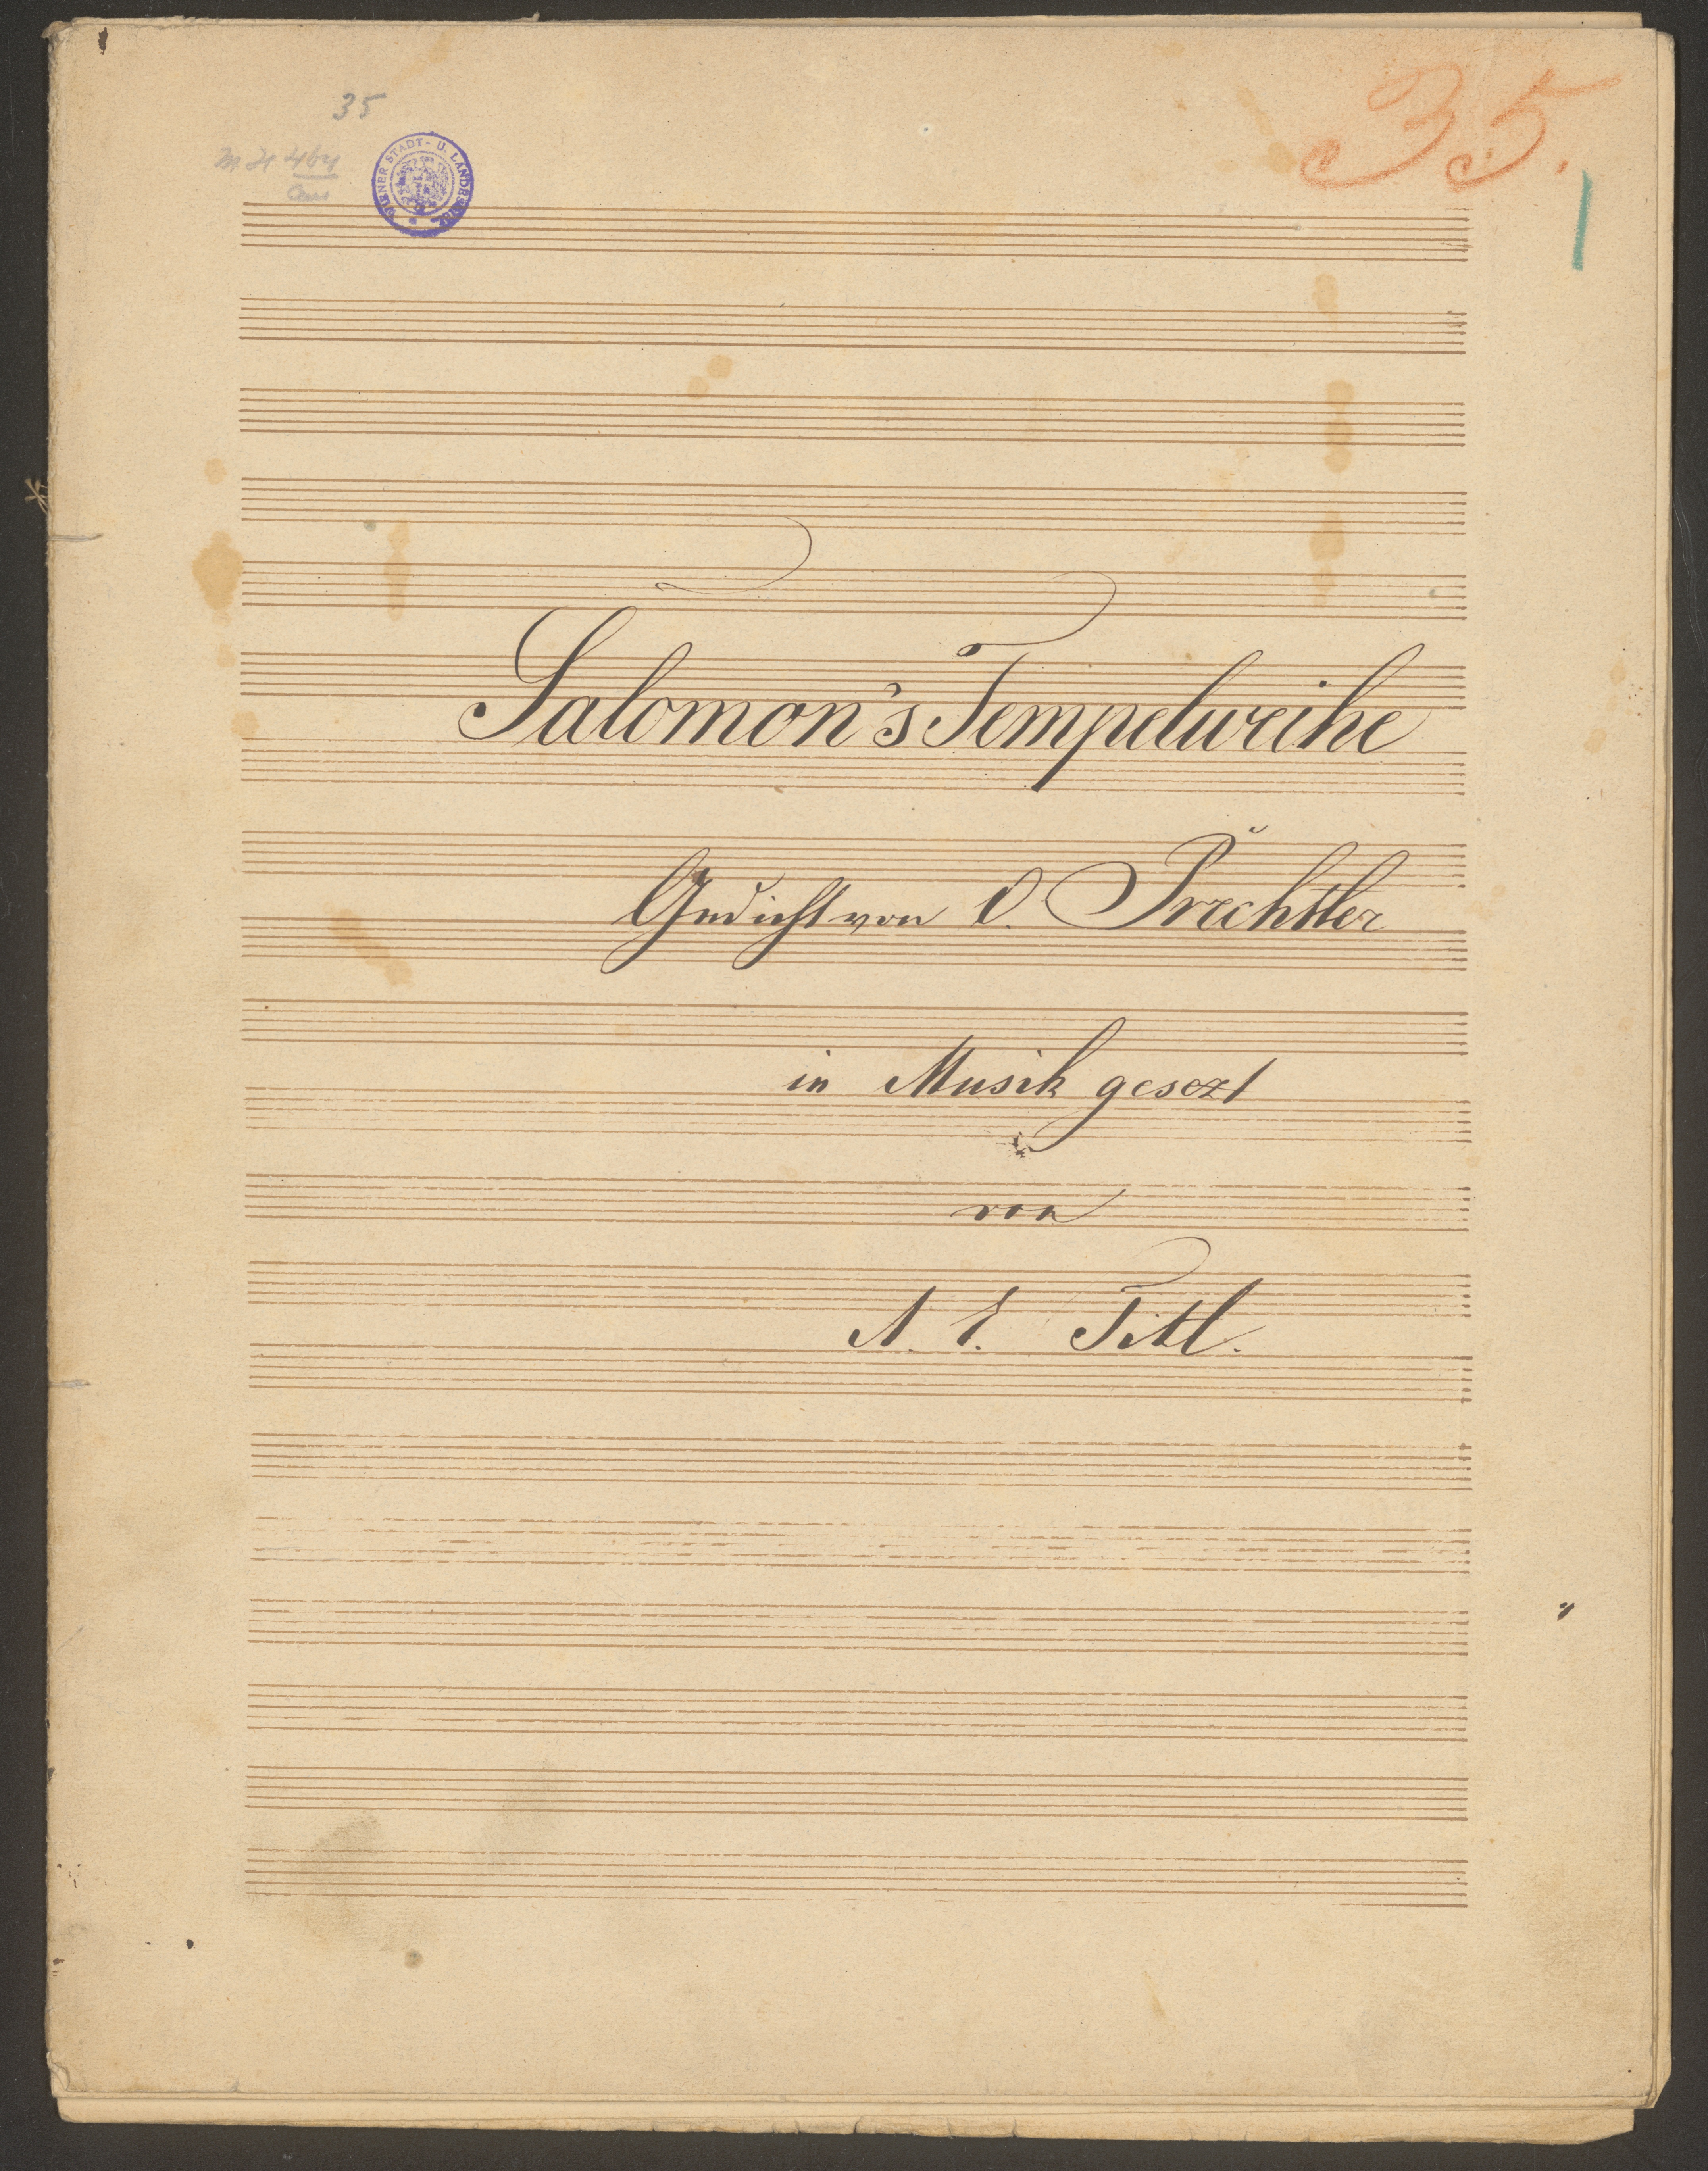 35
35.
WIENER STADT- U. LANDESBIBL.
Salomon's Tempelweihe
Gedicht von O. Prechtler
in Musik gesezt
von
A. E. Titl.